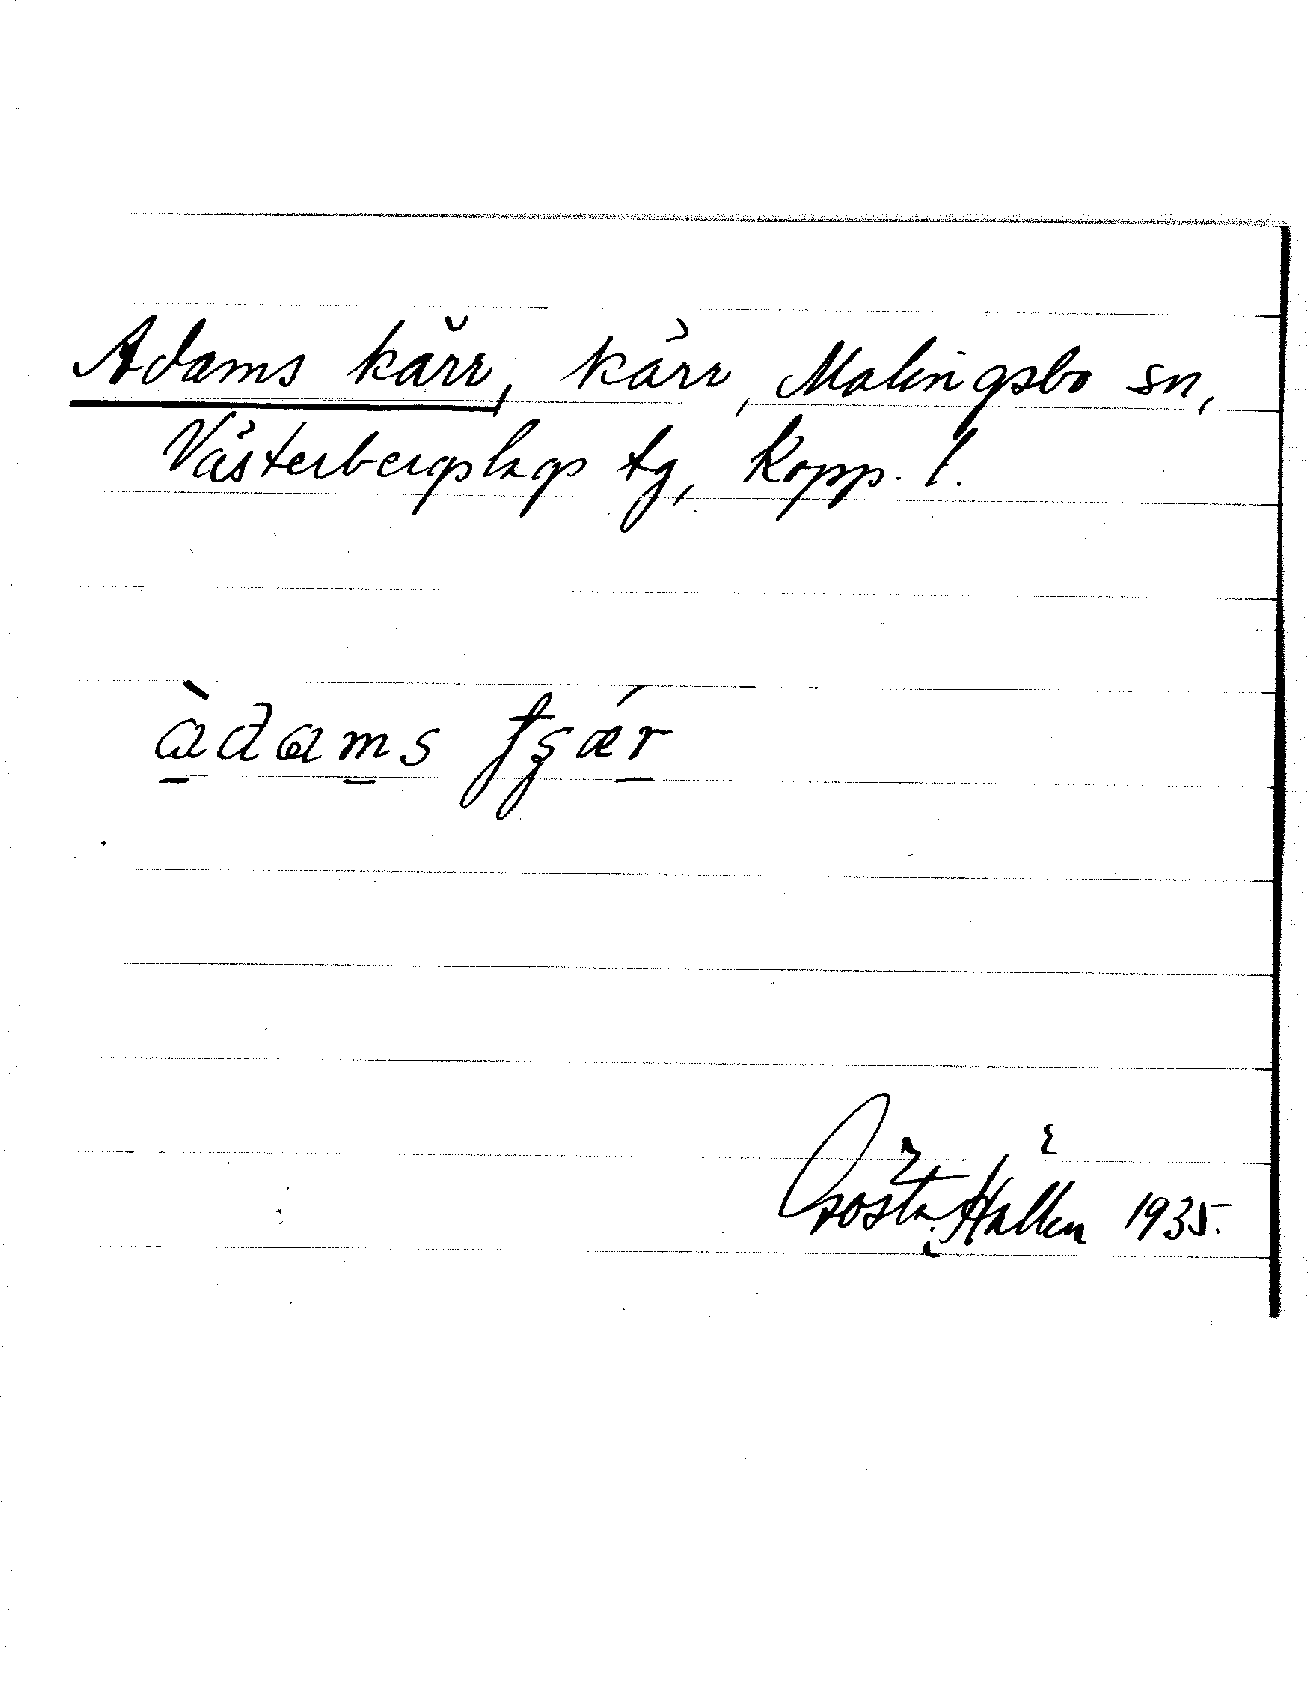 Adams kärr, kärr, Malingsbo sn,
Västerbergslags tg, Kopp. l.
àdams tʂǽr
Gösta Hallén 1935.